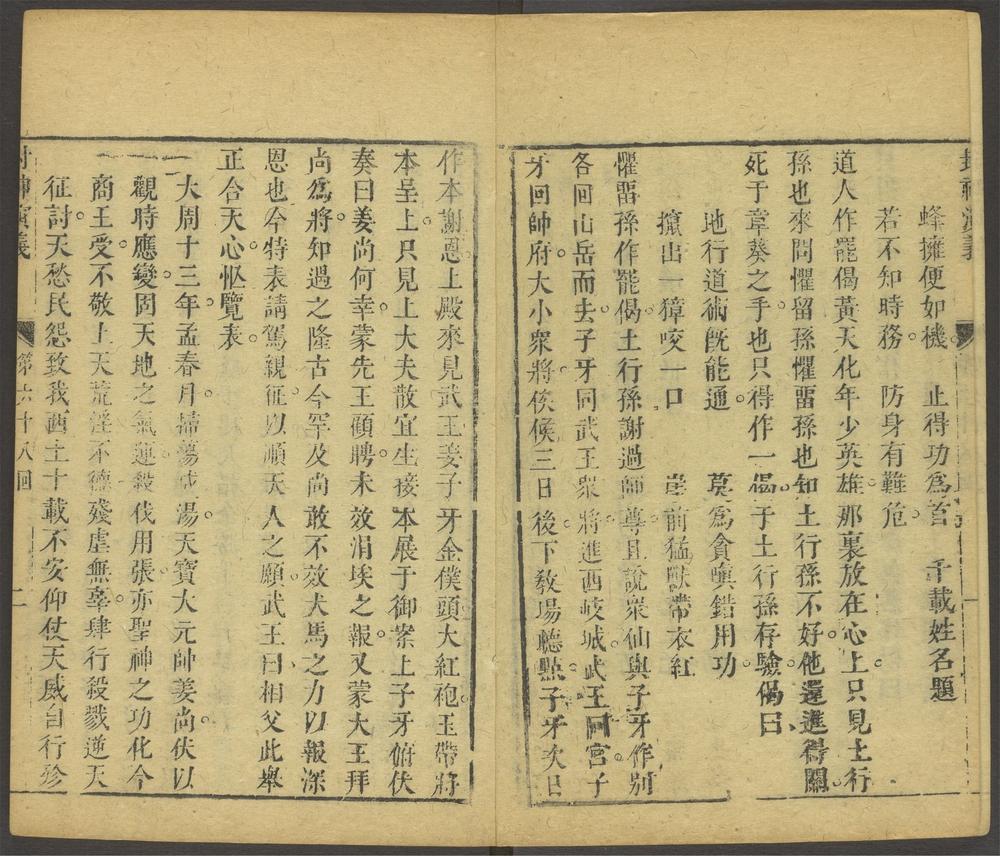 封神演義
蜂擁便如機 止得功為首 千載姓名題
若不知時務 防身有難危
道人作罷偈黃天化年少英雄那裏放在心上只見土行
孫也來問懼留孫懼畱孫也知土行孫不好他還進得關
死于韋葵之手也只得作一偈于土行孫存驗偈曰
地行道術旣能通 莫為貪嗔錯用功
攛出一獐咬一口 崖前猛獸帶衣紅
懼畱孫作罷偈土行孫謝過師尊且說衆仙與子牙作別
各回山岳而去子牙同武王衆將進西岐城武王回宮子
牙回帥府大小衆將俟候三日後下敎場聽㸃子牙次日
作本謝恩上殿來見武王姜子牙金僕頭大紅砲玉帶將
本呈上只見上大夫散宜生接本展于御案上子牙俯伏
奏曰姜尚何幸蒙先王顧聘未效涓埃之報又蒙大王拜
尚爲將知遇之隆古今罕及尚敢不效犬馬之力以報深
恩也今特表請駕親征以順天人之願武王曰相父此舉
正合天心忙覽表
大周十三年孟春月掃蕩成湯天寶大元帥姜尚伏以
觀時應變固天地之氣運殺伐用張亦聖神之功化今
商王受不敬上天荒淫不德殘虐無辜肆行殺戮逆天
征討天愁民怨致我西土十載不安仰仗天威自行殄
封神演義 第六十八回 二